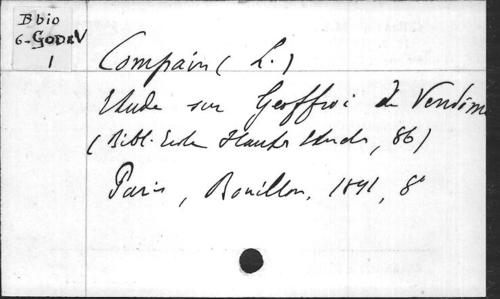 B bio
6-GODEV
1
Compain (L.)
Etude sur Geoffroi de Vendôme
(Bibl. Ecole Hautes Etudes, 86)
Paris, Bouillon, 1891, 8°